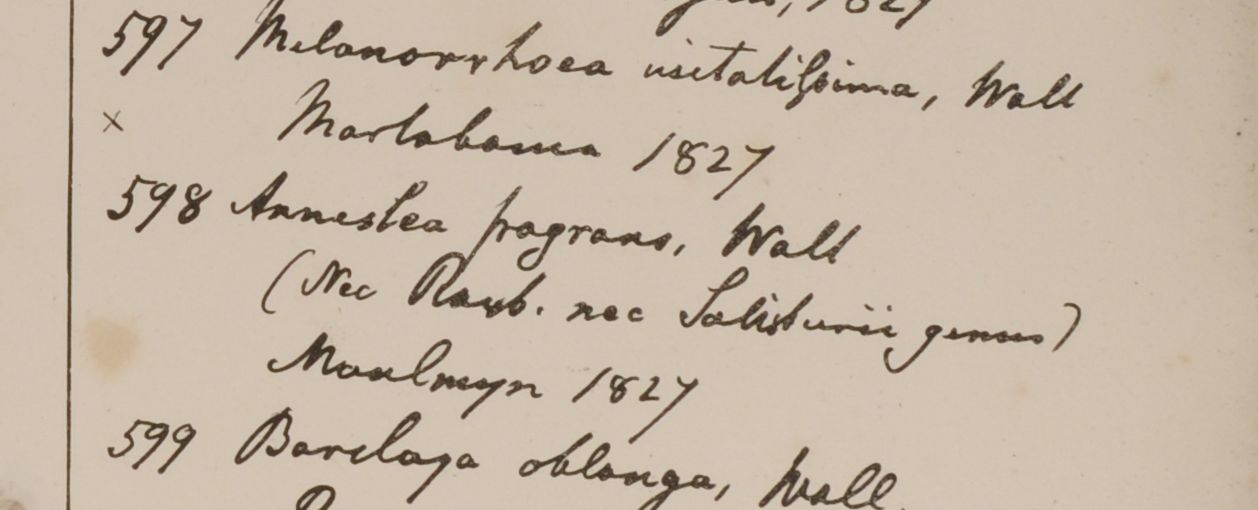 1827
597 Melanorrhoea usitatissima, Wall
× Martabania 1827
598 Anneslea fragrans, Wall
(Nec Roxb. nec Salisburii genus)
Moulmeyn 1827
599 Barclaya oblonga, Wall.